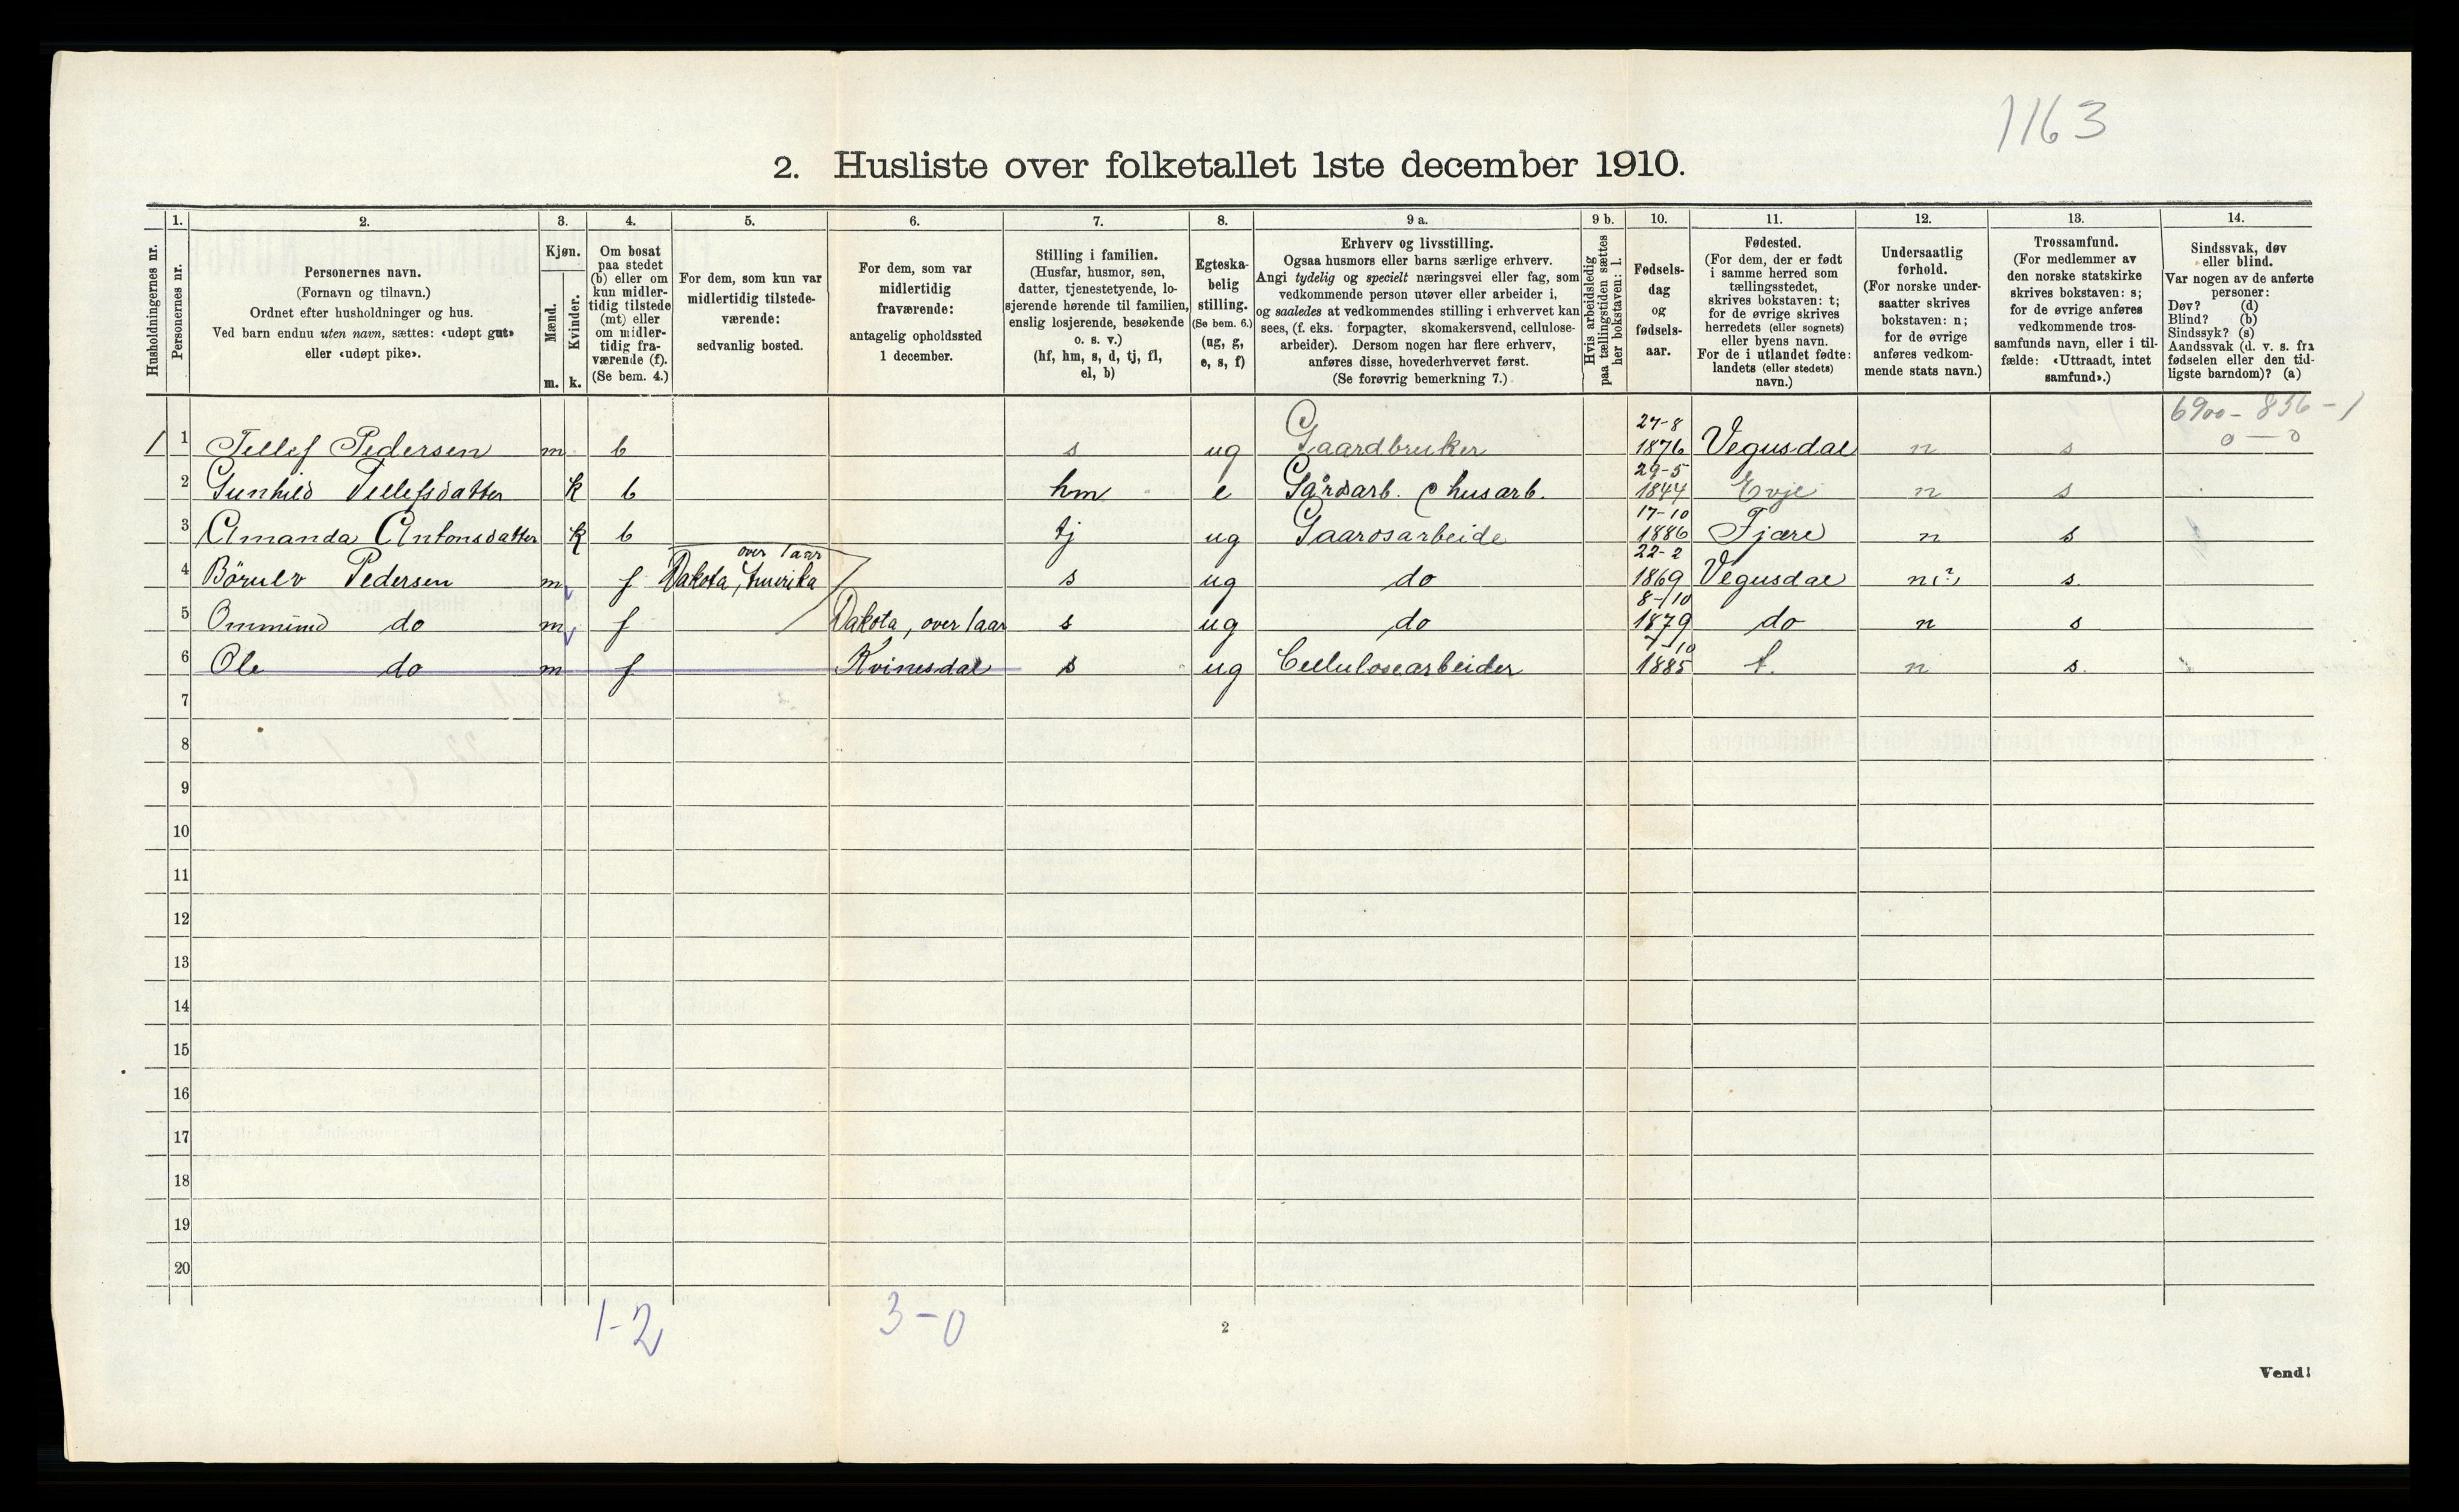 1163
2. Husliste over folketallet 1ste december 1910.
Husholdningernes nr.
1.
Personernes nr.
2.
Personernes navn.
(Fornavn og tilnavn.)
Ordnet efter husholdninger og hus.
Ved barn endnu uten navn, sættes: «udøpt gut»
eller «udøpt pike».
3.
Kjøn.
Mænd.
Kvinder.
m. k.
4.
Om bosat
paa stedet
(b) eller om
kun midler-
tidig tilstede
(mt) eller
om midler-
tidig fra-
værende (f).
(Se bem. 4.)
5.
For dem, som kun var
midlertidig tilstede-
værende:
sedvanlig bosted.
6.
For dem, som var
midlertidig
fraværende:
antagelig opholdssted
1 december.
7.
Stilling i familien.
(Husfar, husmor, søn,
datter, tjenestetyende, lo-
sjerende hørende til familien,
enslig losjerende, besøkende
o. s. v.)
(hf, hm, s, d, tj, fl,
el, b)
8.
Egteska-
belig
stilling.
(Se bem. 6.)
(ug, g,
e, s, f)
9 a.
Erhverv og livsstilling.
Ogsaa husmors eller barns særlige erhverv.
Angi tydelig og specielt næringsvei eller fag, som
vedkommende person utøver eller arbeider i,
og saaledes at vedkommendes stilling i erhvervet kan
sees, (f. eks. forpagter, skomakersvend, cellulose-
arbeider). Dersom nogen har flere erhverv,
anføres disse, hovederhvervet først.
(Se forøvrig bemerkning 7.)
9 b.
Hvis arbeidsledig
paa tællingstiden sættes
her bokstaven: l.
10.
Fødsels-
dag
og
fødsels-
aar.
11.
Fødested.
(For dem, der er født
i samme herred som
tællingsstedet,
skrives bokstaven: t;
for de øvrige skrives
herredets (eller sognets)
eller byens navn.
For de i utlandet fødte:
landets (eller stedets)
navn.)
12.
Undersaatlig
forhold.
(For norske under-
saatter skrives
bokstaven: n;
for de øvrige
anføres vedkom-
mende stats navn.)
13.
Trossamfund.
(For medlemmer av
den norske statskirke
skrives bokstaven: s;
for de øvrige anføres
vedkommende tros-
samfunds navn, eller i til-
fælde: «Uttraadt, intet
samfund».)
14.
Sindssvak, døv
eller blind.
Var nogen av de anførte
personer:
Døv? (d)
Blind? (b)
Sindssyk? (s)
Aandssvak (d. v. s. fra
fødselen eller den tid-
ligste barndom)? (a)
6900 - 836 - 1
0 — 0
1 1 Tellef Pedersen m b s ug Gaardbruker 27-8 1876 Vegusdal n s
2 Gunhild Tellefsdatter k b hm e Gårdsarb. & husarb. 29-5 1844 Evje n s
3 Amanda Antonsdatter k b tj ug Gaardsarbeide 17-10 1886 Fjære n s
over 1 aar
4 Börulv Pedersen m f Dakota, Amerika s ug do 22-2 1869 Vegusdal n(?) s.
5 Ommund do m f Dakota, over 1 aar s ug do 8-10 1879 do n s
6 Ole do m f Kvinesdal s ug Cellulosearbeider 7-10 1885 t. n s.
7
8
9
10
11
12
13
14
15
16
17
18
19
20
1-2 3-0
2
Vend!